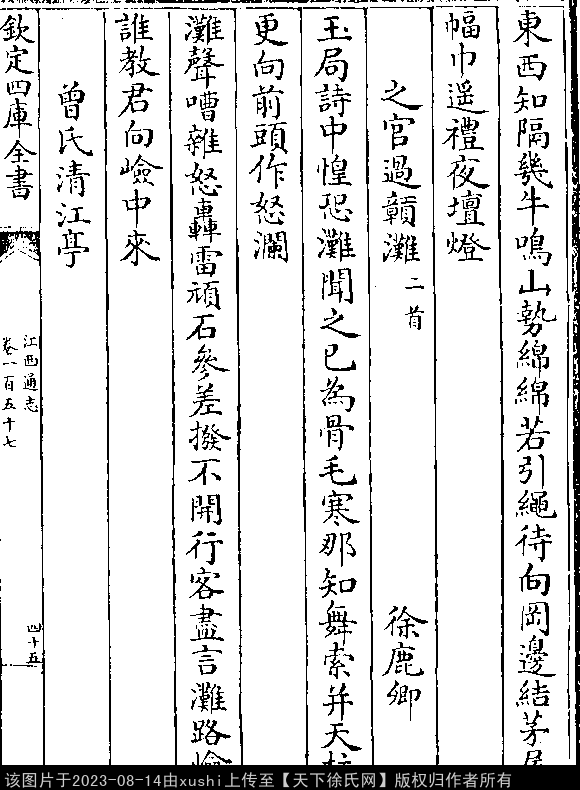 東西知隔幾牛鳴山勢綿綿若引繩待向岡邊結茅
幅巾遥禮夜壇燈
之官過贛灘 二首 徐鹿卿
玉局詩中惶恐灘聞之已為骨毛寒那知舞索并天柱
更向前頭作怒瀾
灘聲嘈雜怒轟雷頑石參差撥不開行客盡言灘路嶮
誰教君向嶮中來
曾氏清江亭
欽定四庫全書
江西通志
卷一百五十七
四十五
该图片于2023-08-14由xushi上传至【天下徐氏网】版权归作者所有